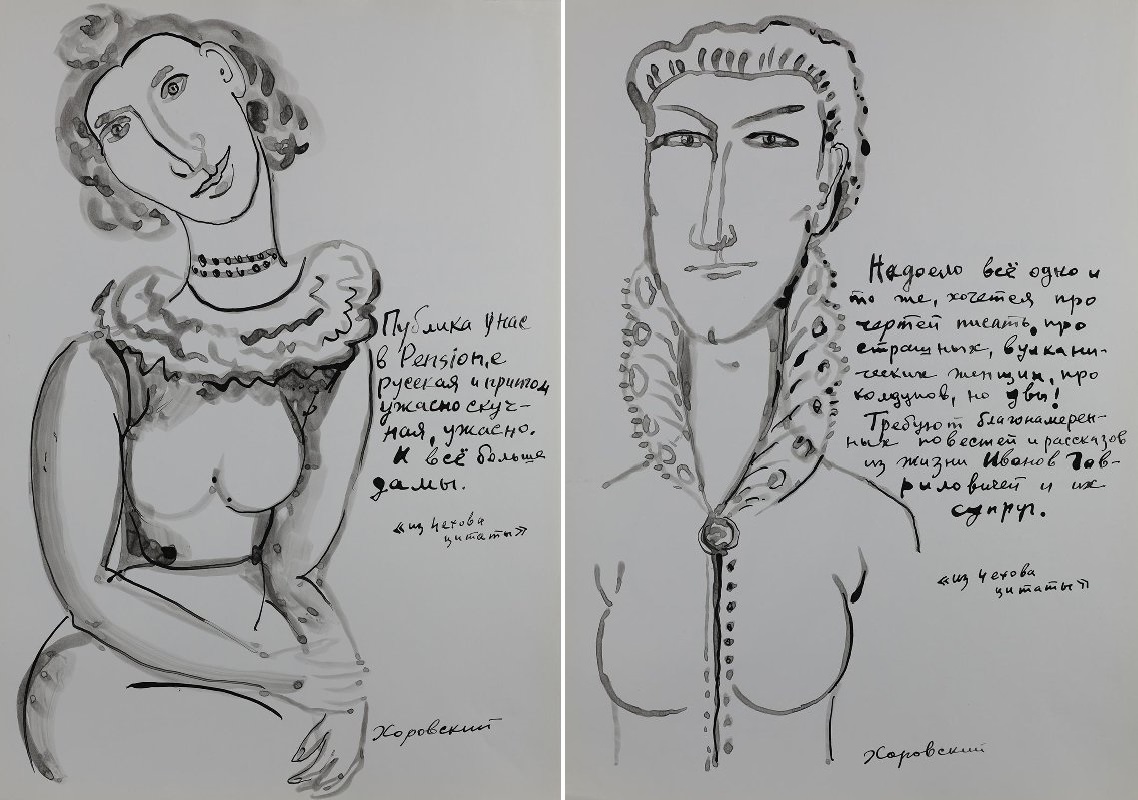 Публика у нас
в Pension,е
русская и притом
ужасно скуч-
ная, ужасно.
И всё больше
дамы.
«из Чехова
цитаты»
Хоровский
Надоело всё одно и
то же, хочется про
чертей писать, про
страшных, вулкани-
ческих женщин, про
колдунов, но увы!
Требуют благонамерен-
ных повестей и рассказов
из жизни Иванов Гав-
риловичей и их
супруг.
«из Чехова
цитаты»
Хоровский